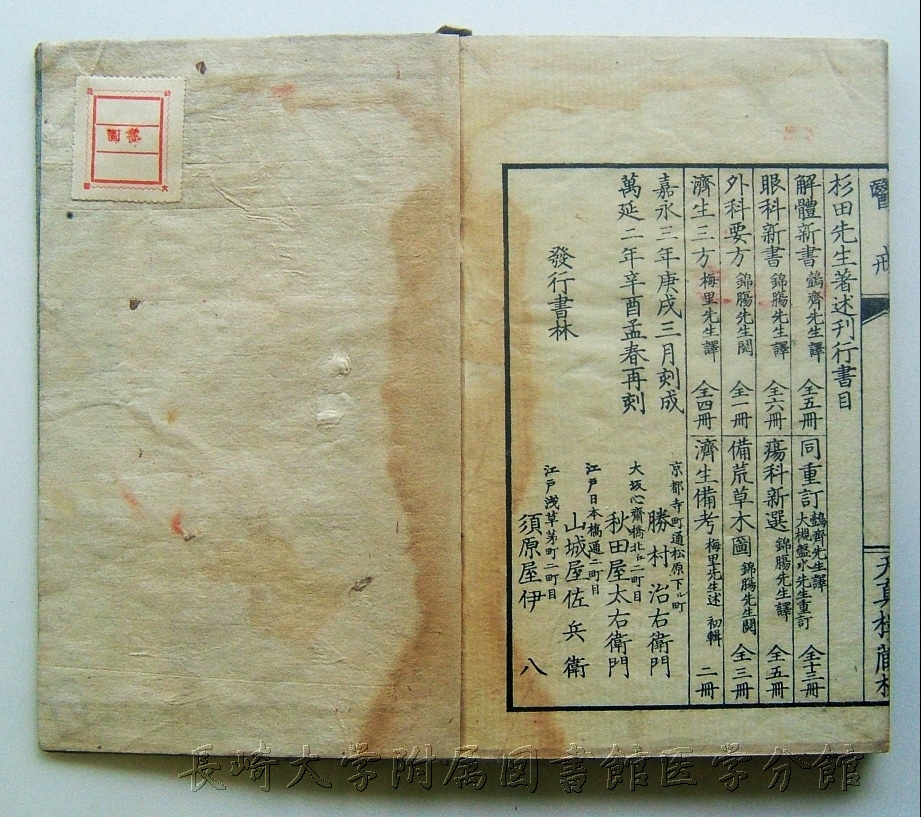 醫戒
天真樓藏板
杉田先生著述刊行書目
解體新書 鷧齋先生譯 全五冊 同重訂 鷧齋先生譯 大槻盤水先生重訂 全十三冊
眼科新書 錦腸先生譯 全六冊 瘍科新選 錦腸先生譯 全五冊
外科要方 錦腸先生閱 全一冊 備荒草木圖 錦腸先生閱 全三冊
濟生三方 梅里先生譯 全四冊 濟生備考 梅里先生述 初輯 二冊
嘉永三年庚戌三月刻成
萬延二年辛酉孟春再刻
發行書林
京都寺町通松原下ル町
勝村治右衛門
大坂心齋橋北二町目
秋田屋太右衛門
江戸日本橋通二町目
山城屋佐兵衛
江戸浅草茅町二町目
須原屋伊八
圖書
長崎大学附属図書館医学分館